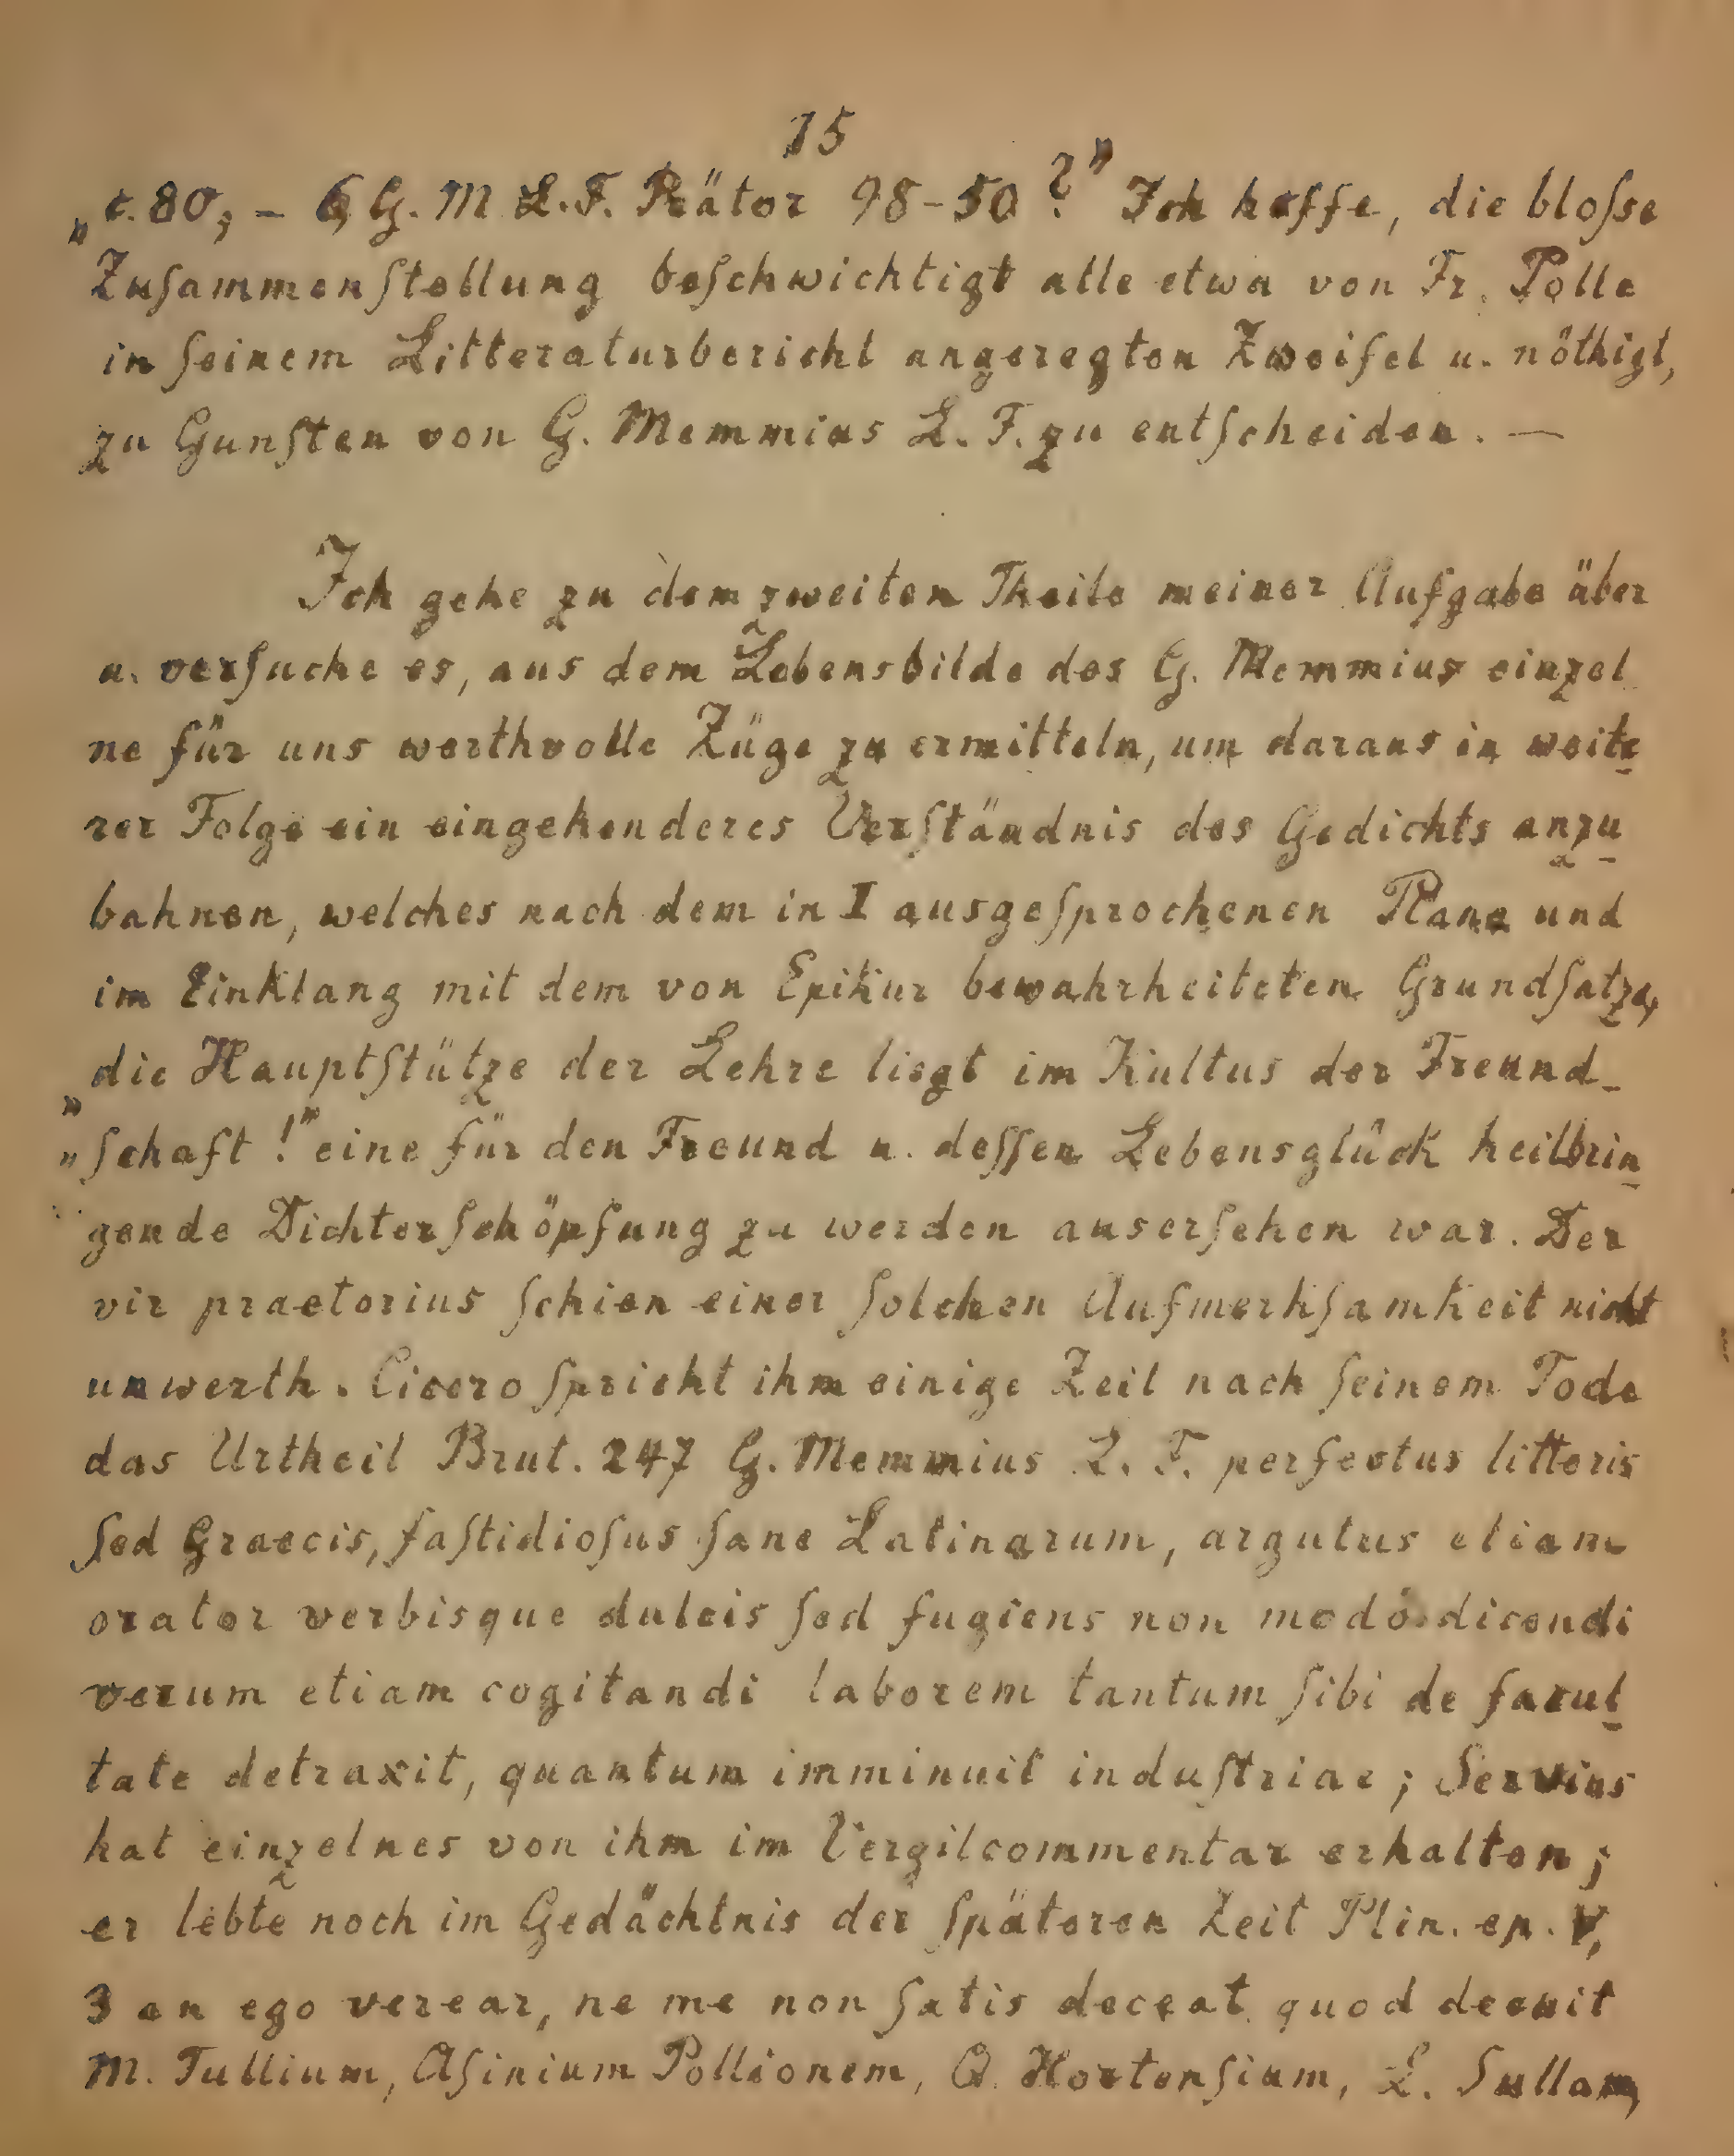 15
„c. 80, – 6, G. M L. F. Prätor 98–50?" Ich hoffe, die bloſse
Zuſammenſtellung beſchwichtigt alle etwa von Fr. Polle
in ſeinem Litteraturbericht angeregten Zweifel u. nöthigt,
zu Gunſten von G. Memmius L. F. zu entſcheiden. —
Ich gehe zu dem zweiten Theile meiner Aufgabe über
u. verſuche es, aus dem Lebensbilde des G. Memmius einzel
ne für uns werthvolle Züge zu ermitteln, um daraus in weite
rer Folge ein eingehenderes Verſtändnis des Gedichts anzu
bahnen, welches nach dem in I ausgeſprochenen Plane und
im Einklang mit dem von Epikur bewahrheiteten Grundſatze,
„die Hauptſtütze der Lehre liegt im Kultus der Freund-
„ſchaft!" eine für den Freund u. deſſen Lebensglück heilbrin
gende Dichterſchöpfung zu werden auserſehen war. Der
vir praetorius ſchien einer ſolchen Aufmerkſamkeit nicht
unwerth. Cicero ſpricht ihm einige Zeit nach ſeinem Tode
das Urtheil Brut. 247 G. Memmius L. F. perfectus litteris
ſed Graecis, faſtidioſus ſane Latinarum, argutus etiam
orator verbisque dulcis ſed fugiens non modo dicendi
verum etiam cogitandi laborem tantum ſibi de facul
tate detraxit, quantum imminuit induſtriae; Servius
hat einzelnes von ihm im Vergilcommentar erhalten;
er lebte noch im Gedächtnis der ſpäteren Zeit Plin. ep. V,
3 an ego verear, ne me non ſatis deceat quod decuit
M. Tullium, Aſinium Pollionem, Q. Hortenſium, L. Sullam,